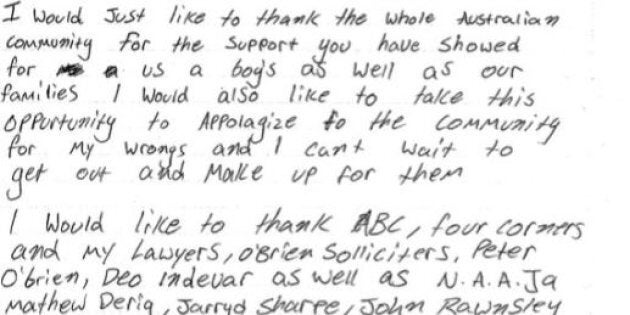 I Would Just like to thank the whole Australian
Community for the support you have showed
for a us a boys as well as our
families I would also like to take this
opportunity to Appolagize to the community
for My wrongs and I cant wait to
get out and Make up for them
I Would like to thank ABC, four corners
and My Lawyers, O'Brien Solliciters, Peter
O'brien, Deo indevar as well as N.A.A.Ja
Mathew Derig, Jarryd Sharpe, John Rawnsley